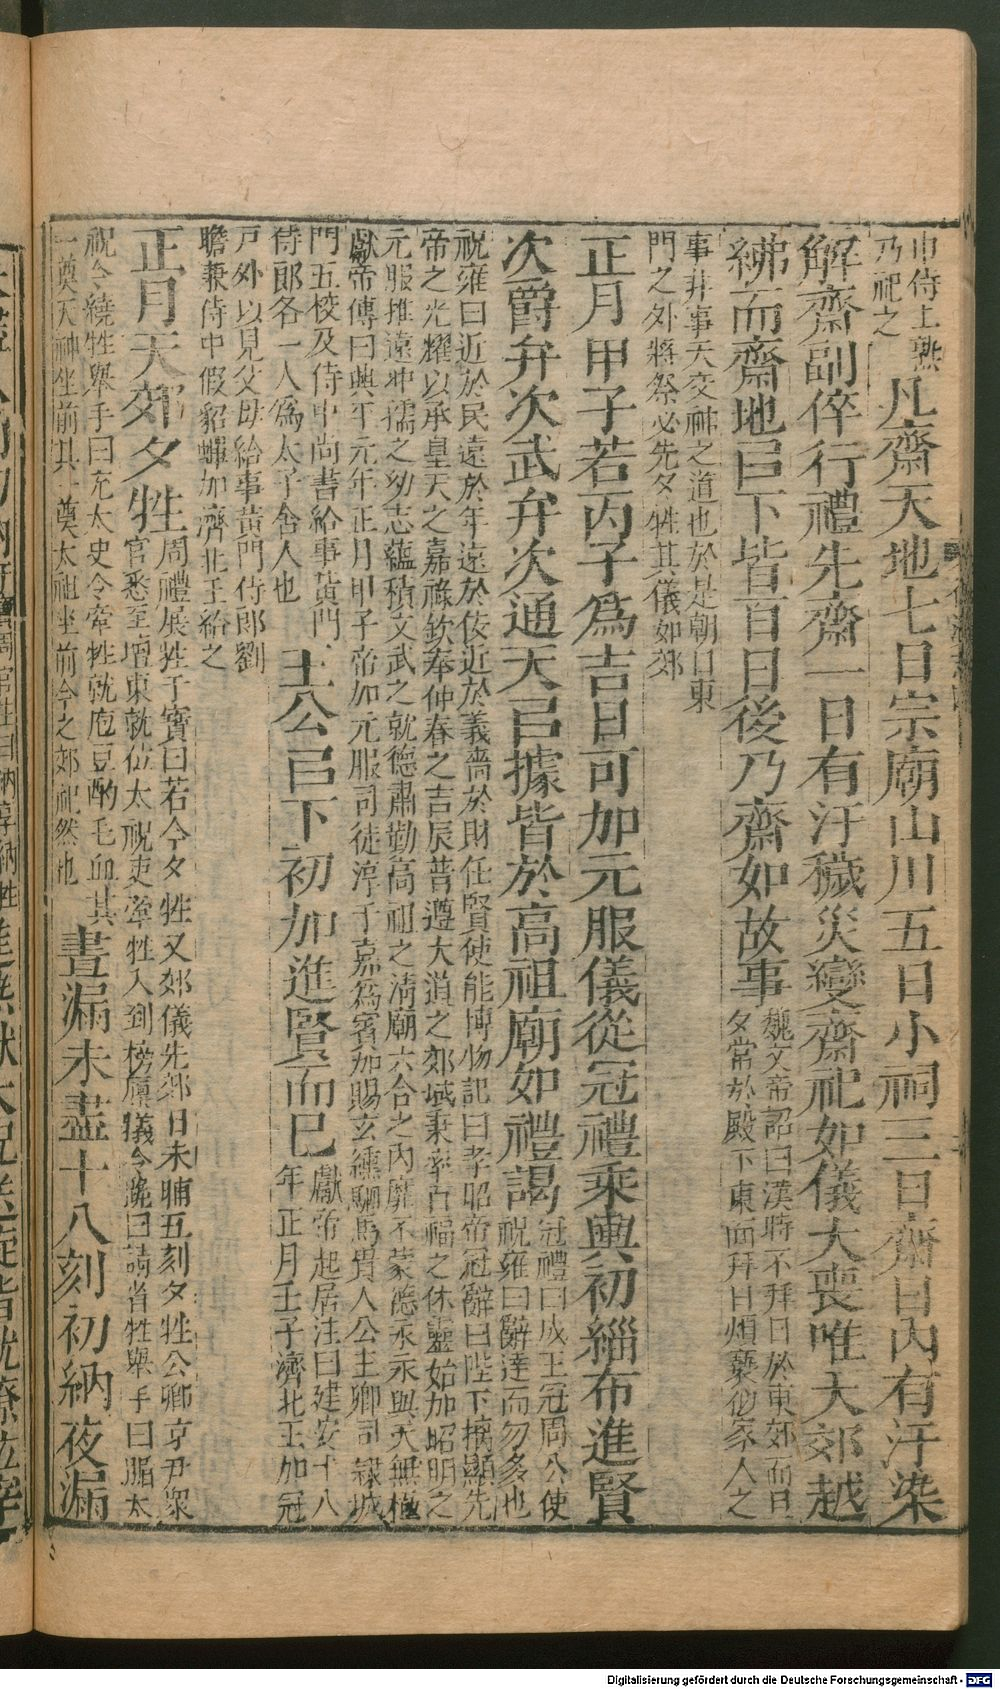 中侍上熟
乃祀之
凡齋天地七日宗廟山川五日小祠三日齋日內有汙染
解齋副倅行禮先齋一日有汙穢災變齋祀如儀大喪唯大郊越
紼而齋地㠯下皆百日後乃齋如故事
魏文帝詔曰漢時不拜日於東郊而旦
夕常於殿下東面拜日煩褻似家人之
事非事天交神之道也於是朝日東
門之外將祭必先夕牲其儀如郊
正月甲子若丙子為吉日可加元服儀從冠禮乘輿初緇布進賢
次爵弁次武弁次通天㠯據皆於高祖廟如禮謁
冠禮曰成王冠周公使
祝雍曰辭達而勿多也
祝雍曰近於民遠於年遠於佞近於義嗇於財任賢使能博物記曰孝昭帝冠辭曰陛下摛顯先
帝之光耀以承皇天之嘉祿欽奉仲春之吉辰普遵大道之郊域秉率百福之休靈始加昭明之
元服推遠冲孺之幼志蘊積文武之就德肅勤高祖之清廟六合之內靡不蒙德永永與天無極
獻帝傳曰興平元年正月甲子帝加元服司徒淳于嘉為賓加賜玄纁駟馬貴人公主卿司隸城
門五校及侍中尚書給事黃門
侍郎各一人為太子舍人也
王公㠯下初加進賢而已
獻帝起居注曰建安十八
年正月壬子濟北王加冠
戶外以見父母給事黃門侍郎劉
瞻兼侍中假貂蟬加濟北王給之
正月天郊夕牲
周禮展牲干寶曰若今夕牲又郊儀先郊日未晡五刻夕牲公卿京尹衆
官悉至壇東就位太祝吏牽牲入到榜廩犧令跪曰請省牲舉手曰腯太
祝令繞牲舉手曰充太史令牽牲就庖豆酌毛血其
一奠天神坐前其一奠太祖坐前今之郊祀然也
晝漏未盡十八刻初納夜漏
Digitalisierung gefördert durch die Deutsche Forschungsgemeinschaft - DFG